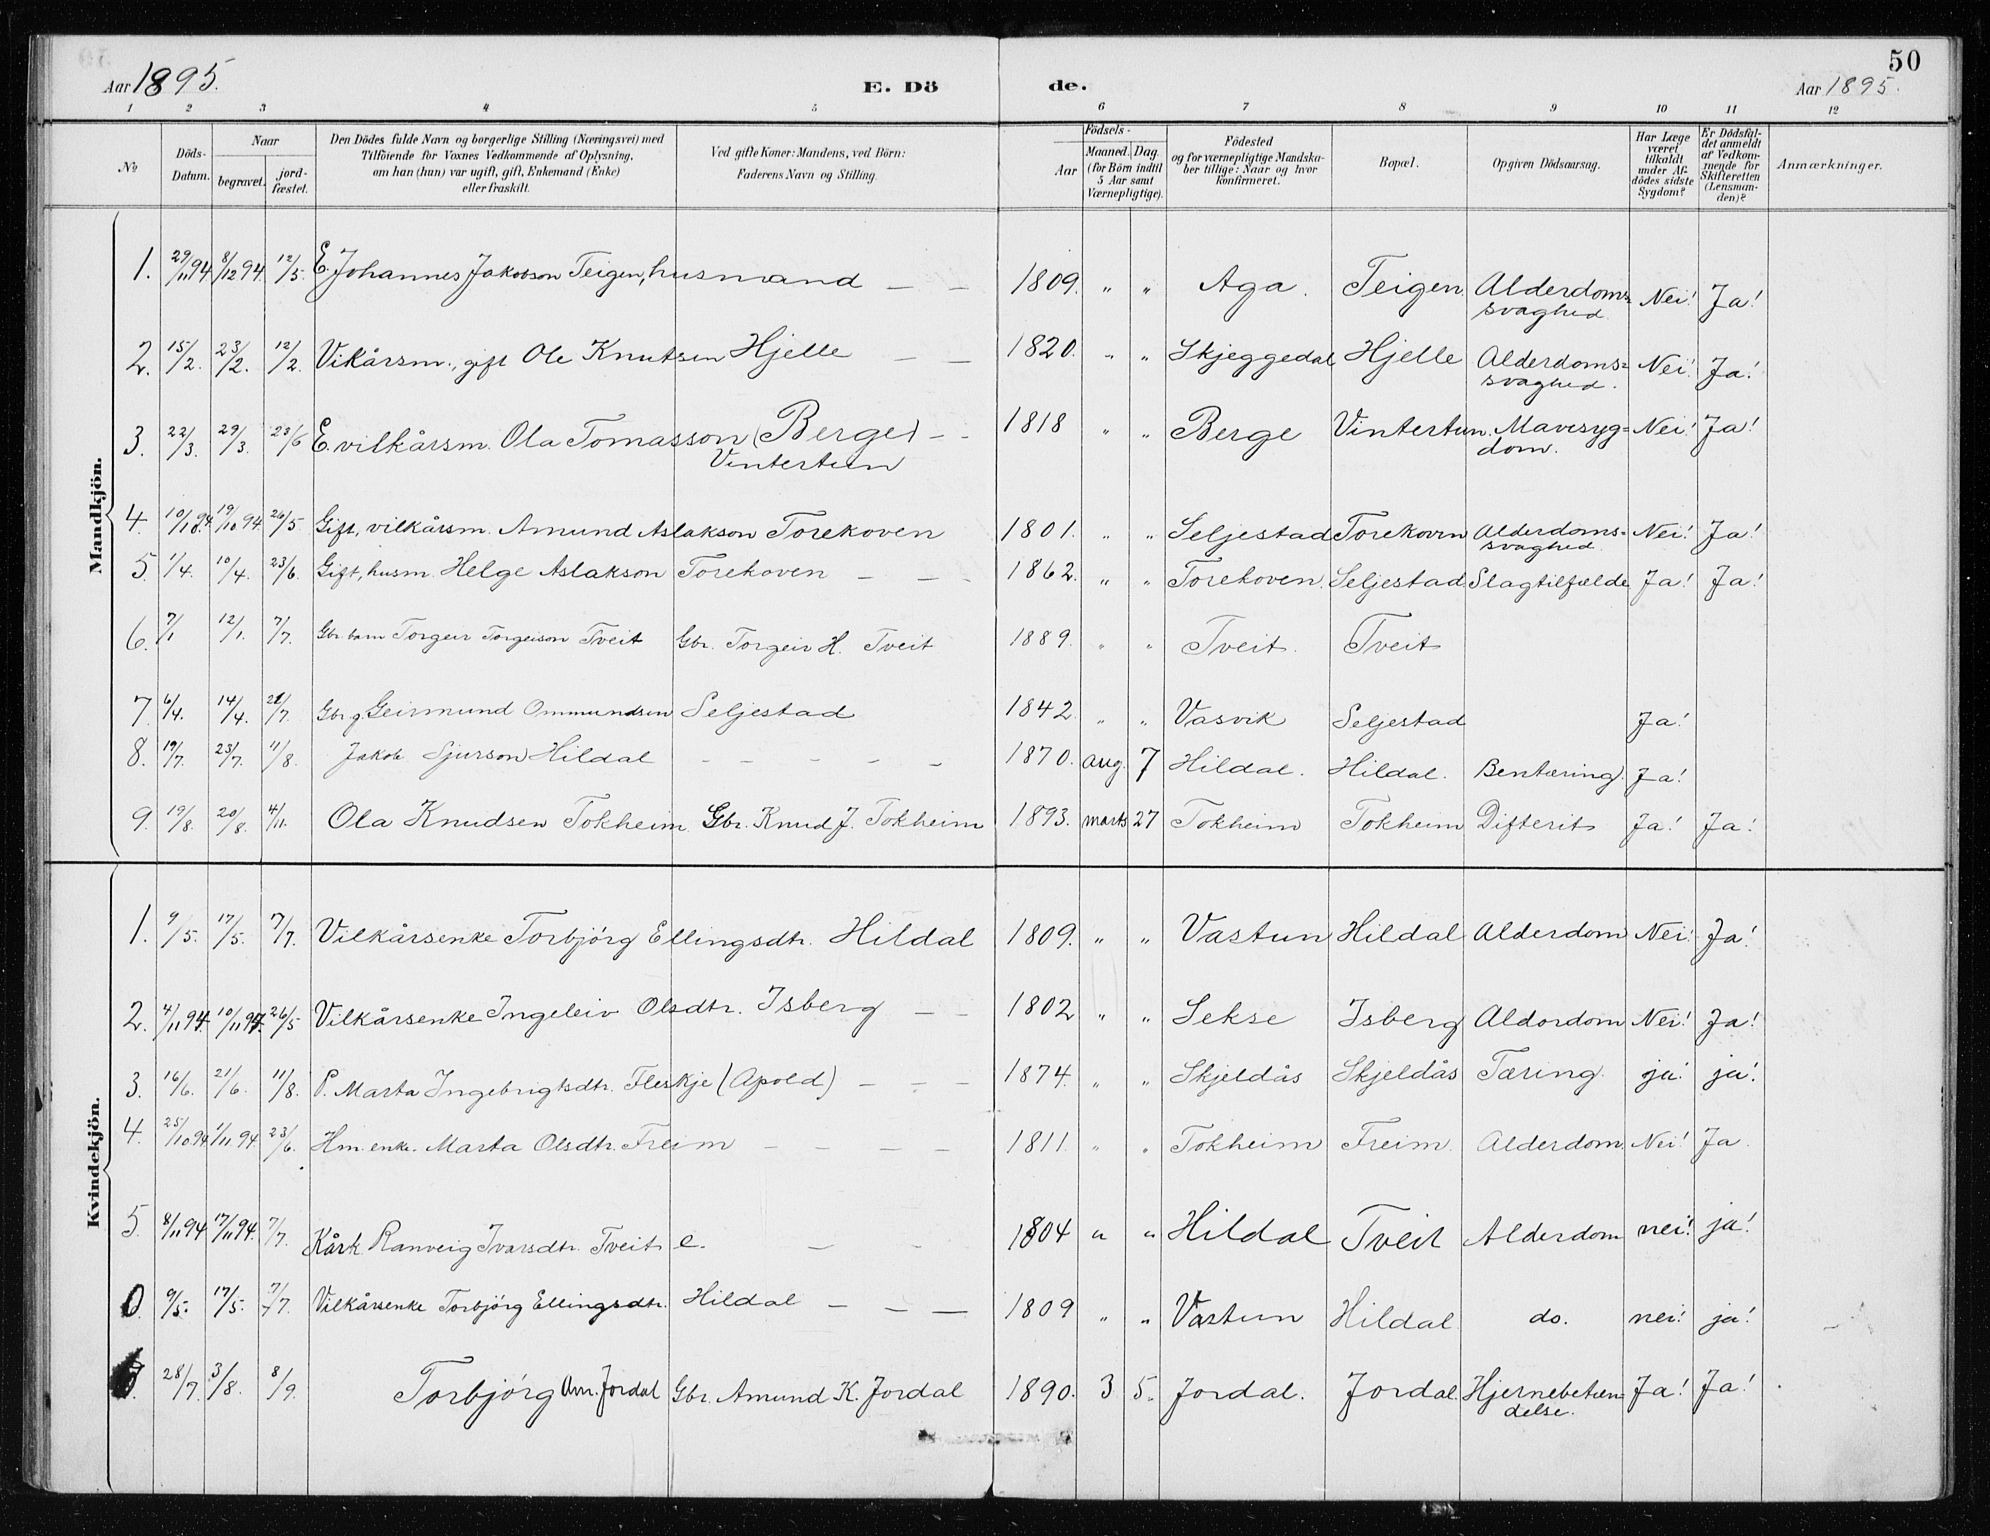 50
Aar 1895. E. Dö de. Aar 1895.
1 2 3 4 5 6 7 8 9 10 11 12
No. Döds-Datum. Naar begravet. jordfæstet. Den Dödes fulde Navn og borgerlige Stilling (Næringsvei) med Tilföiende for Voxnes Vedkommende af Oplysning, om han (hun) var ugift, gift, Enkemand (Enke) eller fraskilt. Ved gifte Koner: Mandens, ved Börn: Faderens Navn og Stilling. Födsels- Aar Maaned. Dag. (for Börn indtil 5 Aar samt Værnepligtige). Födested og for værnepligtige Mandskaber tillige: Naar og hvor konfirmeret. Bopæl. Opgiven Dödsaarsag. Har Læge været tilkaldt under Afdödes sidste Sygdom? Er Dödsfaldet anmeldt af Vedkommende for Skifteretten (Lensmanden)? Anmærkninger.
Mandkjön.
1. 29/11 94 8/12 94. 12/5. E. Johannes Jakobson Teigen, husmand — — 1809. " " Aga. Teigen Alderdoms= Nei! Ja!
svaghed.
2. 15/2. 23/2. 12/2. Vikårsm., gift Ole Knutsen Hjelle — — 1820. " " Skjeggedal Hjelle Alderdoms= Nei! Ja!
svaghed.
3. 22/3. 29/3. 23/6 E. vilkårsm. Ola Tomasson (Berge) – – 1818 " " Berge Vintertun. Mavesyg= Nei! Ja!
Vintertun dom.
4. 10/10 94. 19/10 94. 26/5. Gift, vilkårsm. Amund Aslakson Torekoven 1801. " " Seljestad Torekoven Alderdoms= Nei! Ja!
svaghed
5. 1/4. 10/4. 23/6. Gift, husm. Helge Aslakson Torekoven — — — 1862. " " Torekoven. Seljestad Slagtilfælde Ja! Ja!
6. 7/1 12/1. 7/7. Gbr barn Torgeir Torgeirson Tveit Gbr. Torgeir H. Tveit 1889. " " Tveit. Tveit
7. 6/4. 14/4. 21/7. Gbr g. Geirmund Ommundsen Seljestad 1842. " " Vasvik Seljestad Ja!
8. 19/7. 23/7. 11/8. Jakob Sjurson Hildal – – – – – 1870. aug. 7 Hildal. Hildal. Bentæring. Ja!
9. 19/8. 20/8. 4/11. Ola Knudsen Tokheim. Gbr. Knud J. Tokheim 1893. marts 27 Tokheim Tokheim Difterit Ja! Ja!
Kvindekjön.
1. 9/5. 17/5. 7/7. Vilkårsenke Torbjörg Ellingsdtr. Hildal 1809. " " Vastun Hildal Alderdom Nei! Ja!
2. 4/11 94. 10/11 94. 26/5 Vilkårsenke Ingeleiv Olsdtr. Isberg — — 1802 " " Sekse Isberg Aldordom Nei! Ja!
3. 16/6. 21/6. 11/8. P. Marta Ingebrigtsdtr. Fleskje (Apold) — — — 1874. " " Skjeldås Skjeldås Tæring. ja! ja!
4. 25/10 94. 1/11 94 23/6. Hm. enke. Marta Olsdtr. Freim — — — — 1811. " " Tokheim Freim. Alderdom. Nei! Ja.
5. 8/11 94. 17/11 94. 7/7. Kårk. Ranveig Ivarsdtr. Tveit e. — – 1804 " " Hildal Tveit Alderdom nei! ja!
0 9/5. 17/5. 7/7. Vilkårsenke Torbjörg Ellingsdtr. Hildal — — — 1809 " " Vastun Hildal do. nei! ja!
28/7. 3/8. 8/9. Torbjörg Am. Jordal Gbr. Amund K. Jordal 1890. 3 5. Jordal. Jordal Hjernebetæn= Ja! Ja!
delse.